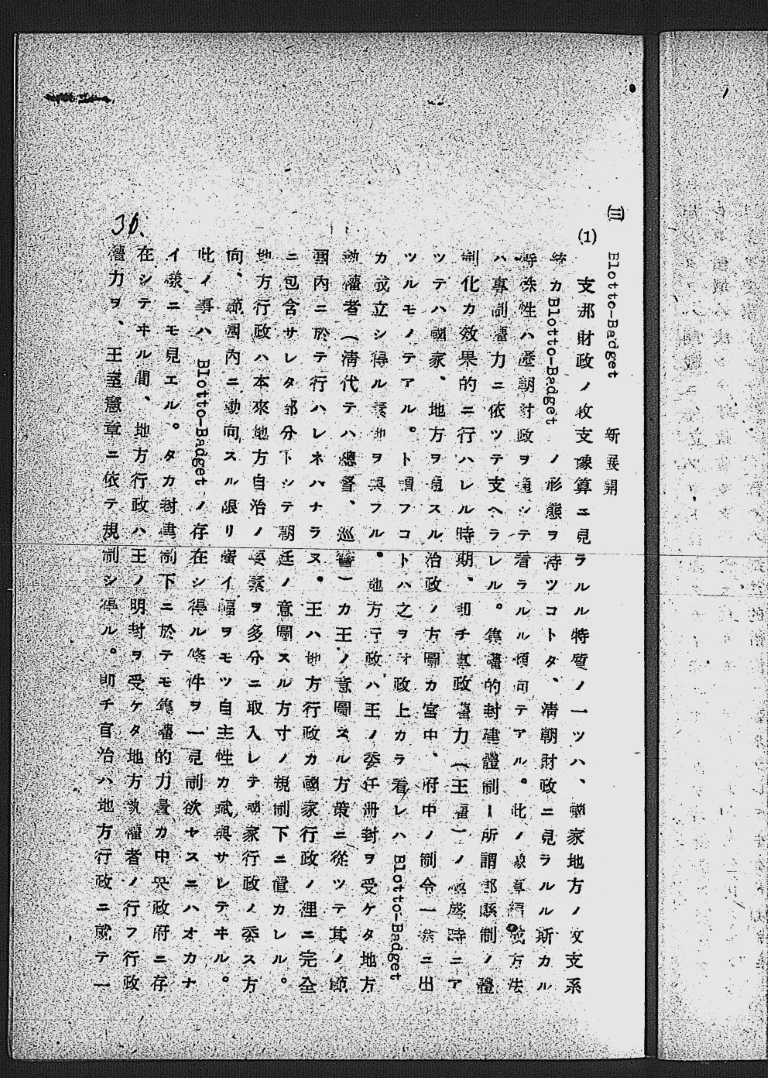 (二) Blotto-Badget 新展開
(1) 支那財政ノ收支豫算ニ見ラルル特質ノ一ツハ、國家地方ノ收支系
統カ Blotto-Badget ノ形態ヲ待ツコトタ、清朝財政ニ見ラルル斯カル
特殊性ハ歷朝財政ヲ通シテ看ラルル傾向テアル。此ノ豫算編成方法
ハ專制權力ニ依ツテ支ヘラレル。集權的封建體制ー所謂郡縣制ノ體
制化カ效果的ニ行ハレル時期、卽チ專政權力（王權）ノ 時ニア
ツテハ國家、地方ヲ通スル治政ノ方圖カ宮中、府中ノ制令一 ニ出
ツルモノテアル。ト謂フコトハ之ヲ 政上カラ看レハ Blotto-Badget
カ成立シ得ル素地ヲ與フル。地方行政ハ王ノ委任册封ヲ受ケタ地方
執權者（清代テハ總督、巡撫）カ王ノ意圖スル方策ニ從ツテ其ノ範
圍內ニ於テ行ハレネハナラヌ。王ハ地方行政カ國家行政ノ埋ニ完全
ニ包含サレタ部分トシテ朝廷ノ意圖スル方寸ノ規制下ニ置カレル。
地方行政ハ本來地方自治ノ要素ヲ多分ニ取入レテ國家行政ノ委ス方
向、範圍內ニ動向スル限リ 幅ヲモツ自主性カ賦與サレテヰル。
此ノ事ハ Blotto-Badget ノ存在シ得ル條件ヲ一見制欲ヤスニハオカナ
イ樣ニモ見エル。タカ封建制下ニ於テモ集權的力量カ中央政府ニ存
在シテヰル間、地方行政ハ王ノ明封ヲ受ケタ地方執權者ノ行フ行政
權力ヲ、王室憲章ニ依テ規制シ得ル。卽チ官治ハ地方行政ニ就テ一
36.